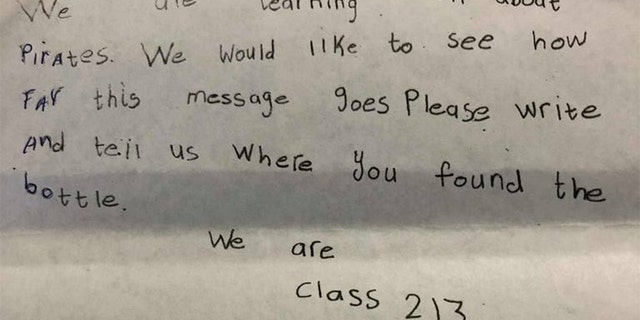 We are learning about
Pirates. We would like to see how
FAr this message goes Please write
And tell us where you found the
bottle.
We are
Class 213